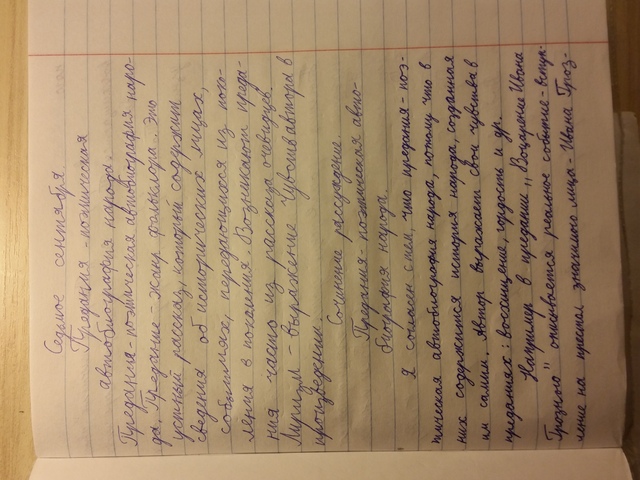 Седьмое сентября.
Предания - поэтическая
автобиография народа.
Предания - поэтическая автобиография наро-
да. Предание - жанр фольклора. Это
устный рассказ, который содержит
сведения об исторических лицах,
событиях, передающихся из поко-
ления в поколения. Возникают преда-
ния часто из рассказа очевидцев.
Лиризм - выражение чувств автора в
произведении.
Сочинение рассуждение.
Предания поэтическая авто-
биография народа.
Я согласен с тем, что предания - поэ-
тическая автобиография народа, потому что в
них содержится история народа, созданная
им самим. Автор выражает свои чувства в
преданиях: восхищение, гордость и др.
Например в предании „Воцарение Ивана
Грозного" описывается реальное событие - вступ-
ление на престол значимого лица - Ивана Гроз-